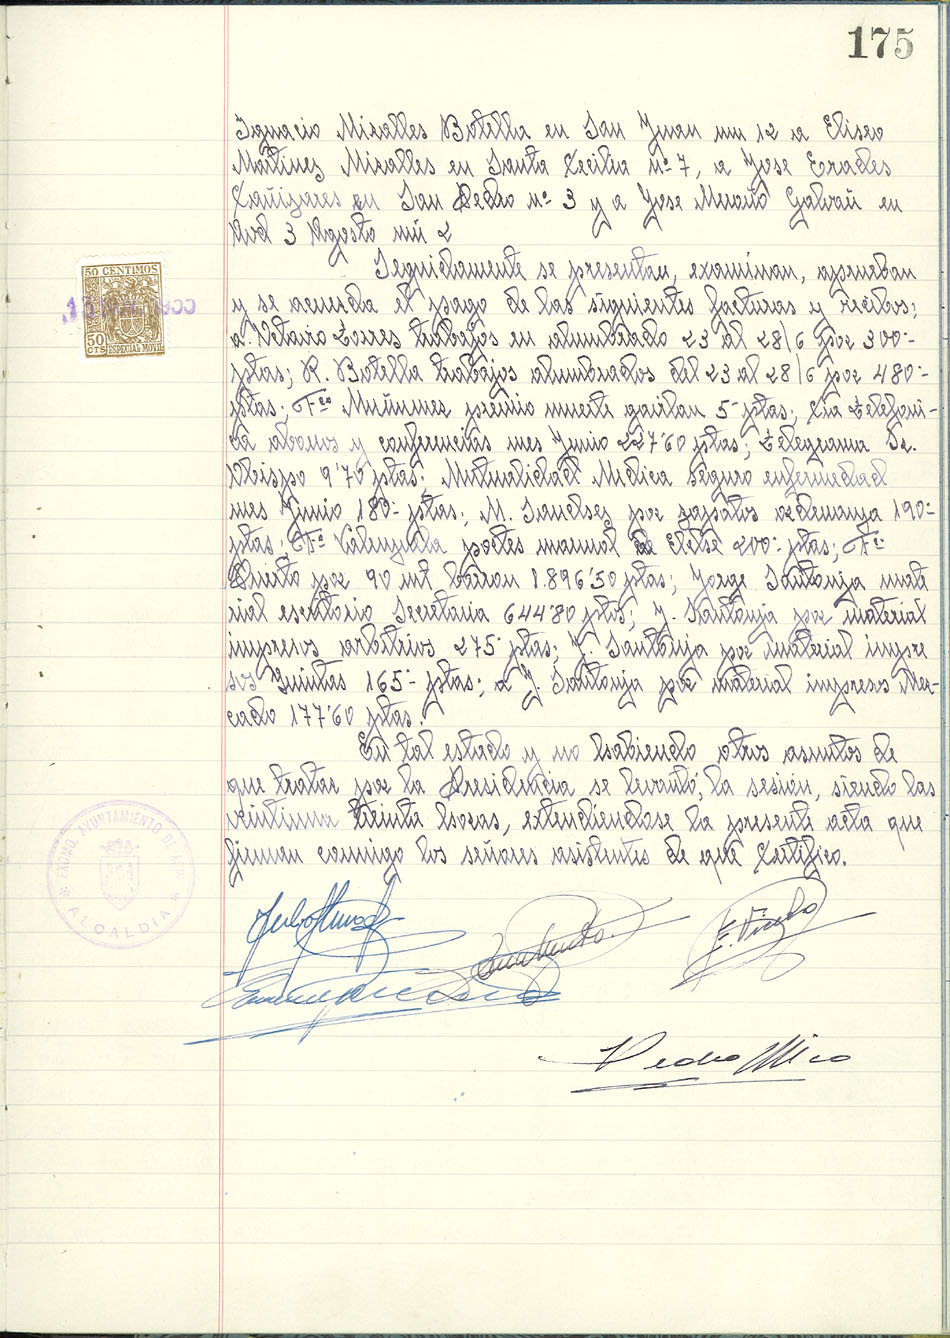 175
Ignacio Miralles Botella en San Juan num 12 a Eliseo
Martinez Miralles en Santa Cecilia nº 7, a Jose Erades
Cañizares en San Pedro nº 3 y a Jose Galvañ en
3 Agosto nu 2
Seguidamente se presentan, examinan, aprueban
y se acuerda el pago de las siguientes facturas y recibos;
a. Torres trabajos en alumbrado 23 al 28/6 por 300'-
ptas; R. Botella trabajos alumbrados del 23 al 28/6 por 480'-
ptas; Fco premio muerte gavilan 5'- ptas; Cia Telefoni-
ca abonos y conferencias mes Junio 227'60 ptas; Telegrama Sr.
Obispo 9'70 ptas; Mutualidad Medica Seguro enfermedad
mes Junio 180'- ptas; M. Sanchez por zapatos 190'-
ptas; Fco Valenzuela portes marmol de Elche 200'- ptas; Fco
por 90 mt 1.896'50 ptas; Jorge Santonja mate
rial escritorio Secretaria 644'80 ptas; J. Santonja por material
impresos arbitrios 275'- ptas; J. Santonja por material impre
sos Quintas 165'- ptas; a J. Santonja por material impresos Mer-
cado 177'60 ptas.
En tal estado y no habiendo otros asuntos de
que tratar por la Presidencia se levantó, la sesion, siendo las
veintiuna treinta horas, extendiendose la presente acta que
firman conmigo los señores asistentes de que Certifico.
50 CENTIMOS
50
CTS ESPECIAL MOVIL
EXCMO. AYUNTAMIENTO DE ASPE
* ALCALDIA *
Pedro Mico